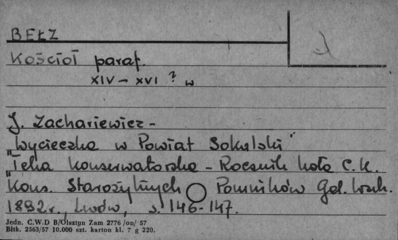 BEŁZ
Kościoł paraf.
XIV – XVI ? w
J. Zachariewicz –
"Wycieczka w Powiat Sokalski"
"Teka Konserwatorska – Rocznik Koła C.K.
Kons. Starożytnych Pomników Gal. Wsch.
1892 r., Lwów, s. 146-147.
Jedn. C.W.D B/Olsztyn Zam 2776 /on/ 57
Błtk. 2563/57 10.000 szt. karton kl. 7 g 220.